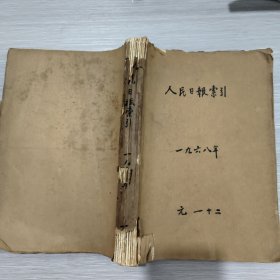 人民日報索引
一九六八年
元 一十二
民日報索引